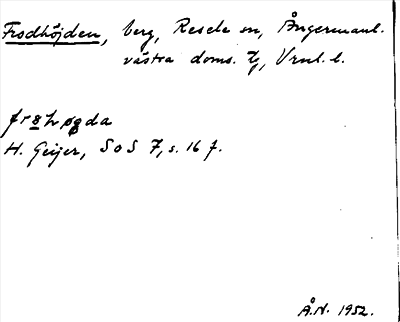 Frodhöjden, berg, Resele sn, Ångermanl.
västra doms. tg, Vrnl. l.
fröhøgda
H. Geijer, SoS 7, s. 16 f.
Å.N. 1952.